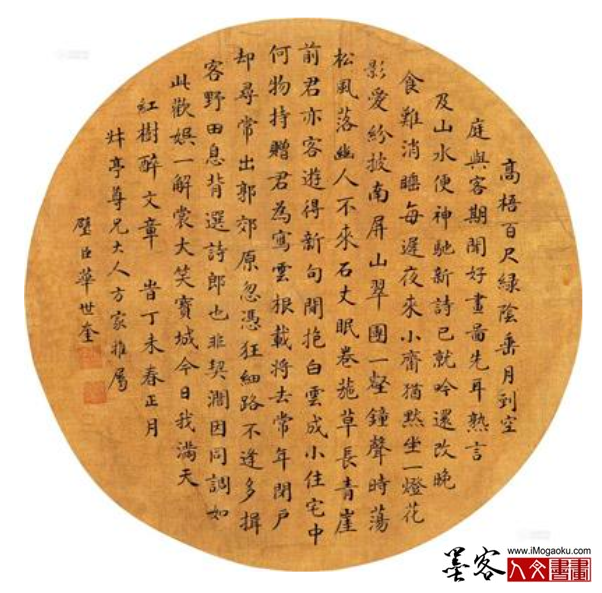 高梧百尺綠陰垂月到空
庭與客期聞好畫啚先耳熟言
及山水便神馳新詩已就吟還改晚
食難消睡每遲夜來小齋猶黙坐一燈花
影愛紛披南屏山翠團一壑鐘聲時蕩
松風落幽人不來石丈眠卷施草長青崖
前君亦客遊得新句閒抱白雲成小住宅中
何物持贈君為寫雲根載將去常年閉戶
却尋常出郭郊原忽憑狂細路不逢多揖
客野田息背選詩郎也非契濶因同調如
此歡娛一解裳大笑寶城今日我滿天
紅樹醉文章 昔丁未春正月
竹亭尊兄大人方家雅屬
璧臣華世奎
墨客
www.iMogaoku.com
人文書畫